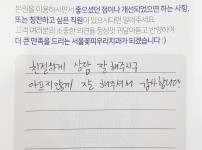 본원을 이용하시면서 좋으셨던 점이나 개선되었으면 하는 사항,
또는 칭찬하고 싶은 직원이 있으시다면 알려주세요.
고객 여러분의 소중한 의견을 정성껏 귀담아듣고 반영하여
더 큰 만족을 드리는 서울꽃피우리치과가 되겠습니다 :)
친절하게 상담 잘 해주시구
아프지않게 잘 해주셔서 감사합니다